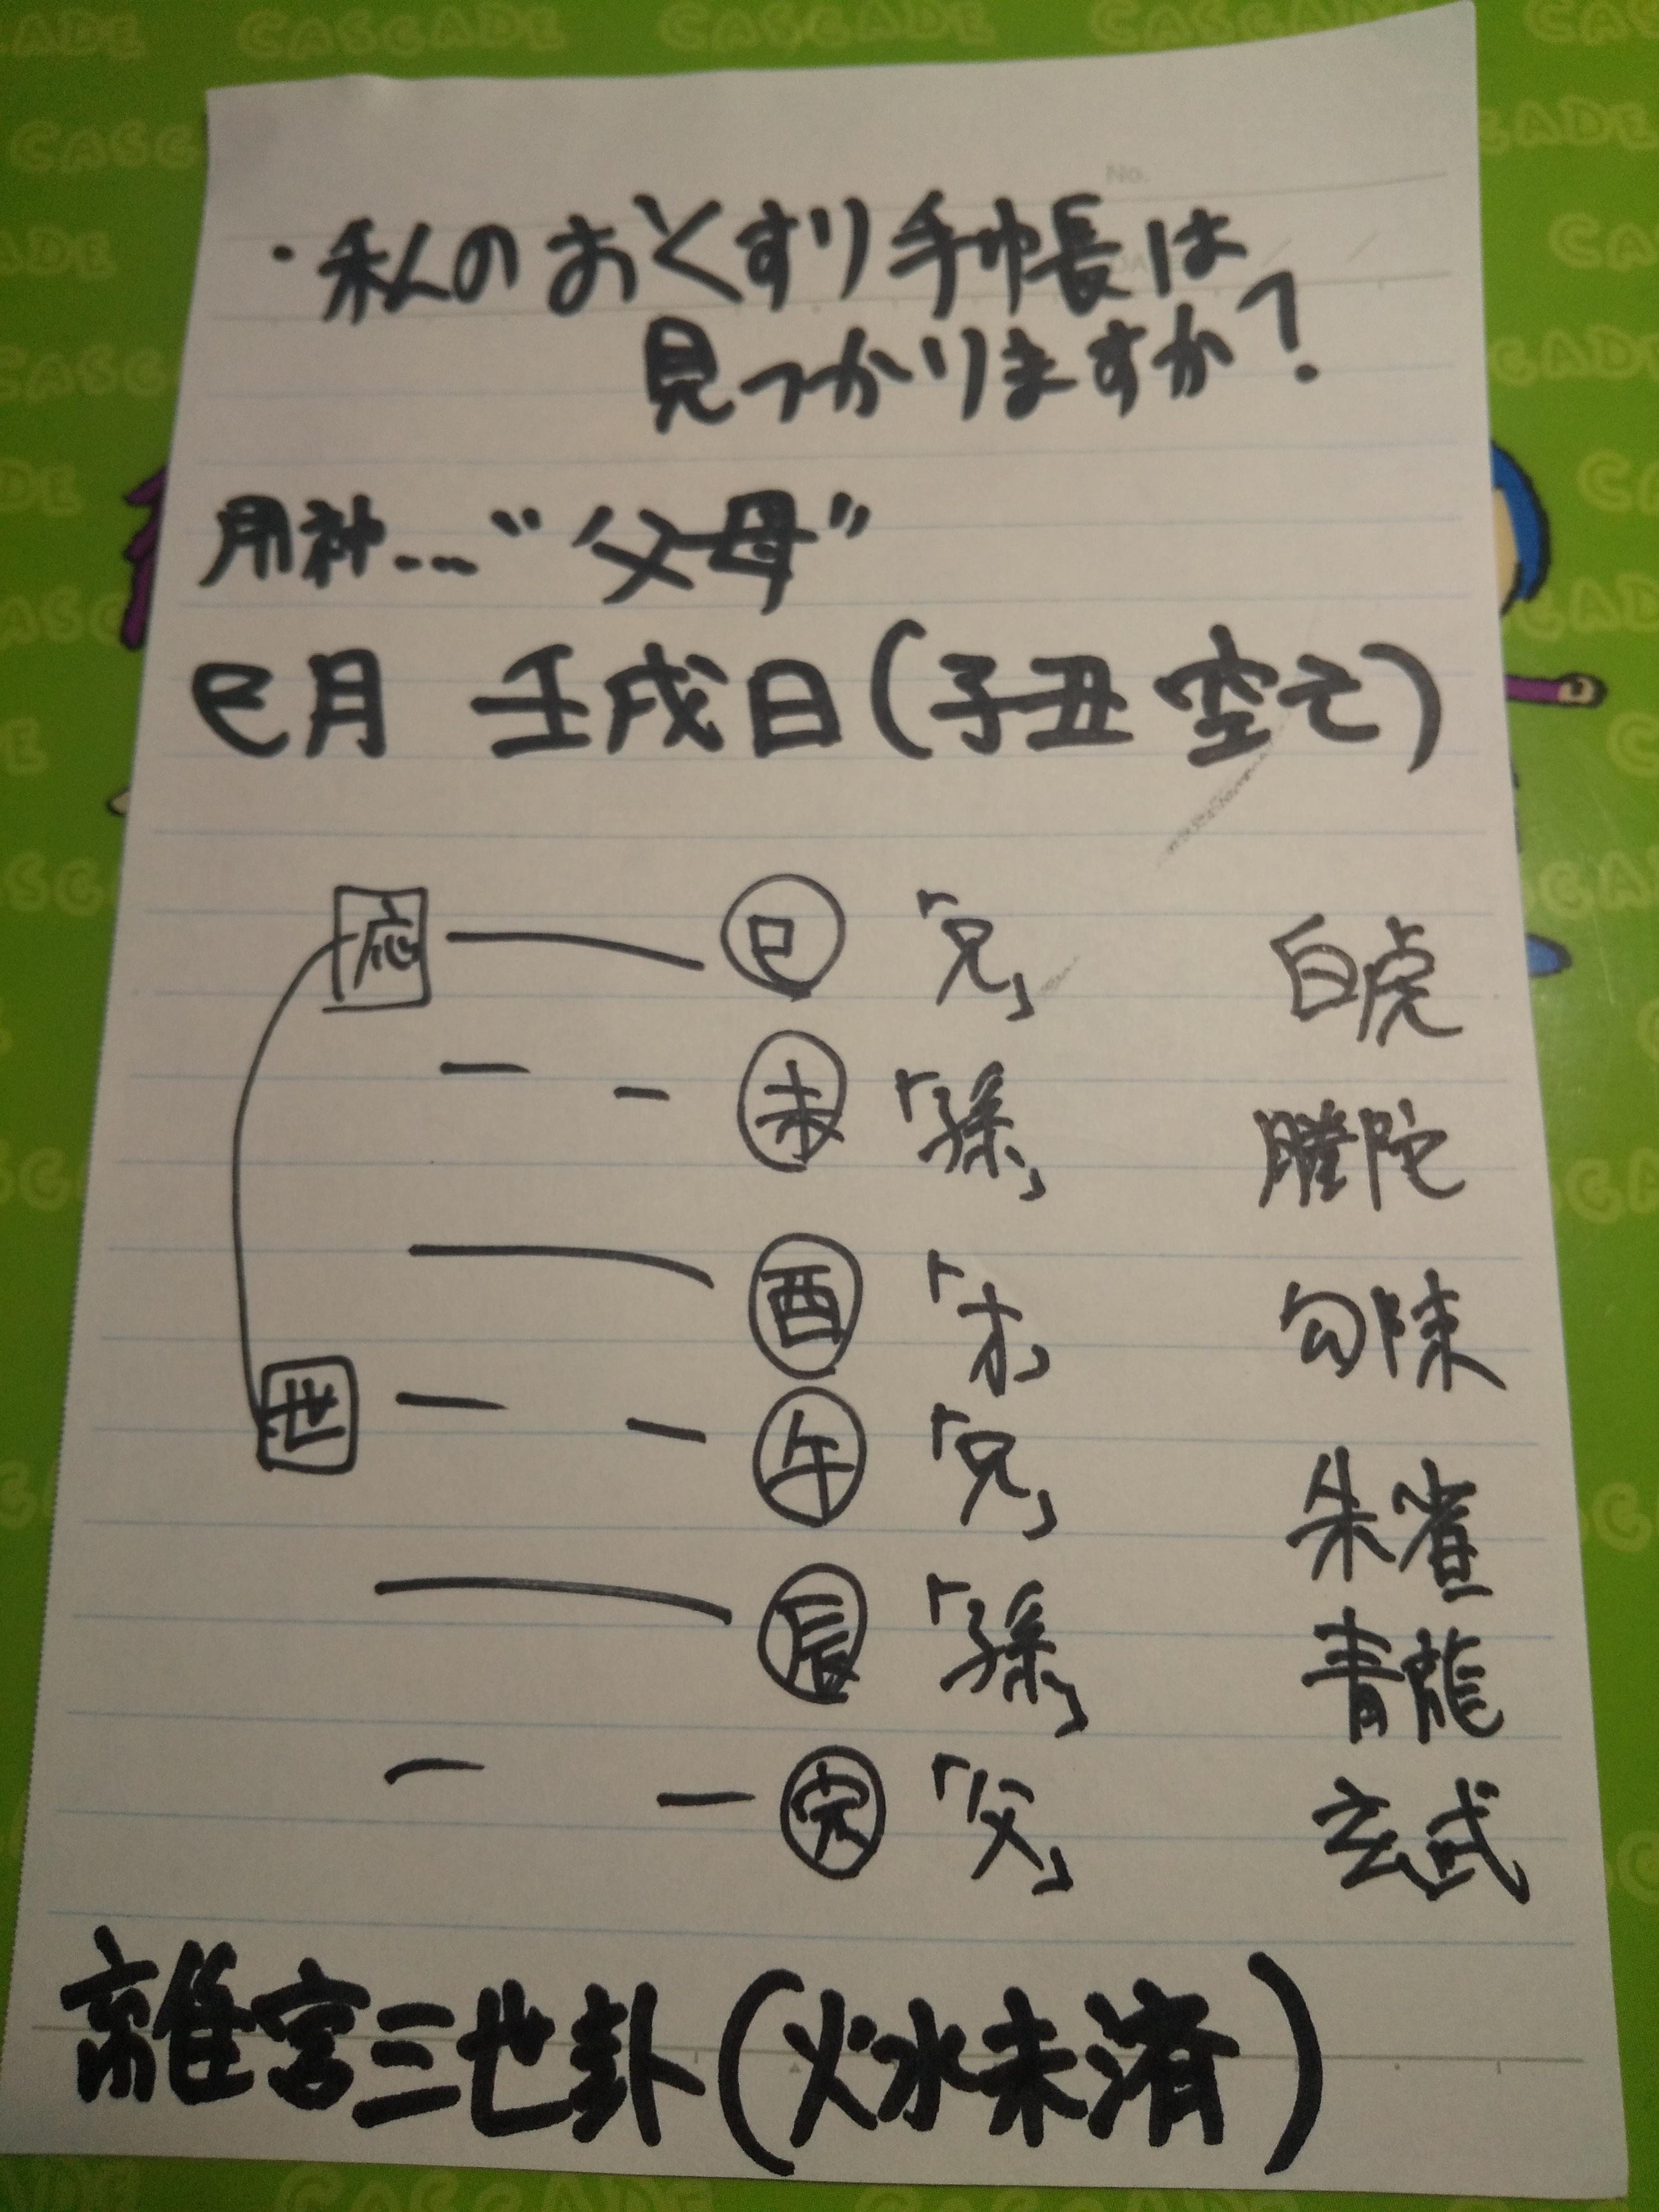 CASCADE CASCADE CASCADE
No.
・私のおくすり手帳は
見つかりますか?
用神…"父母"
巳月 壬戌日(子丑空亡)
応 巳 「兄」 白虎
未 「孫」 螣陀
酉 「才」 勾陳
世 午 「兄」 朱雀
辰 「孫」 青龍
寅 「父」 玄武
離宮三世卦(火水未済)